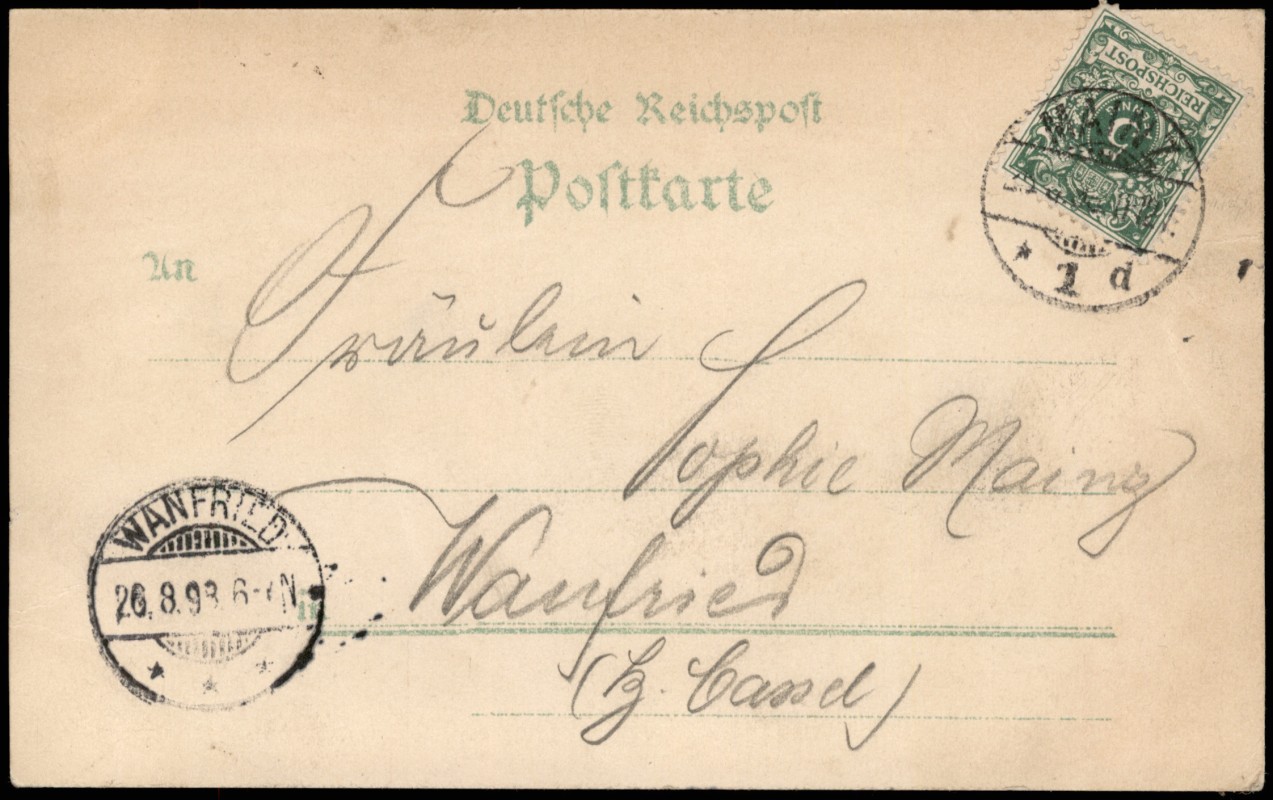 Deutsche Reichspost
Postkarte
REICHSPOST
5
1 d
An
Fräulein
Sophie Mainz
WANFRIED
26.8.98.6-7N
in
Wanfried
(Bz. Cassel)